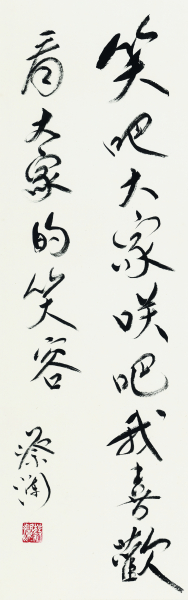 笑吧大家咲吧我喜歡
看大家的笑容
蔡瀾